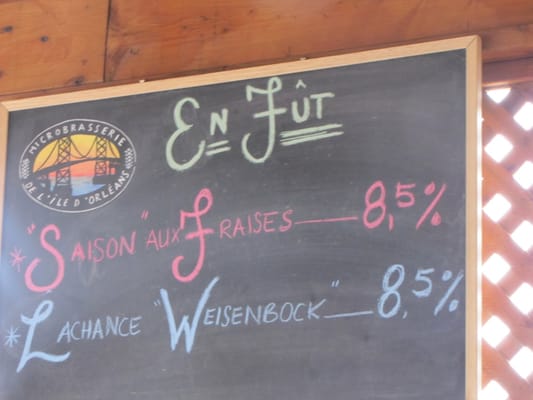 En Fût
MICROBRASSERIE
DE L'ÎLE D'ORLÉANS
* "SAISON" AUX FRAISES — 8,5%
* LACHANCE "WEISENBOCK" — 8,5%